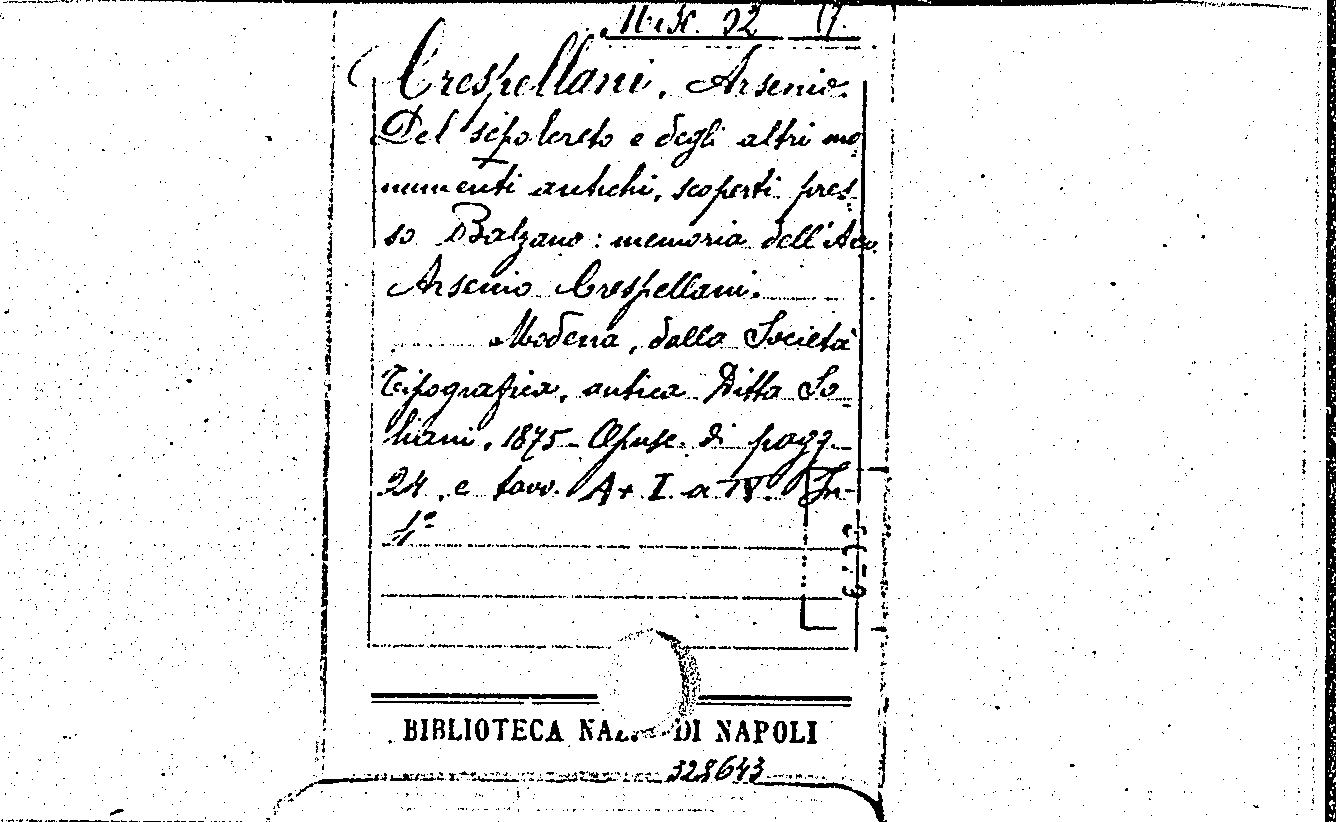 Misc. 32
Crespellani, Arsenio.
Del sepolcreto e degli altri mo-
numenti antichi, scoperti pres-
so Balzano: memoria dell'Avv.
Arsenio Crespellani.
Modena, dalla Società
Tipografica, antica Ditta So-
liani, 1875 - Opusc. di pagg.
24, e tavv. A + I a IV. In-
4°
BIBLIOTECA DI NAPOLI
328643